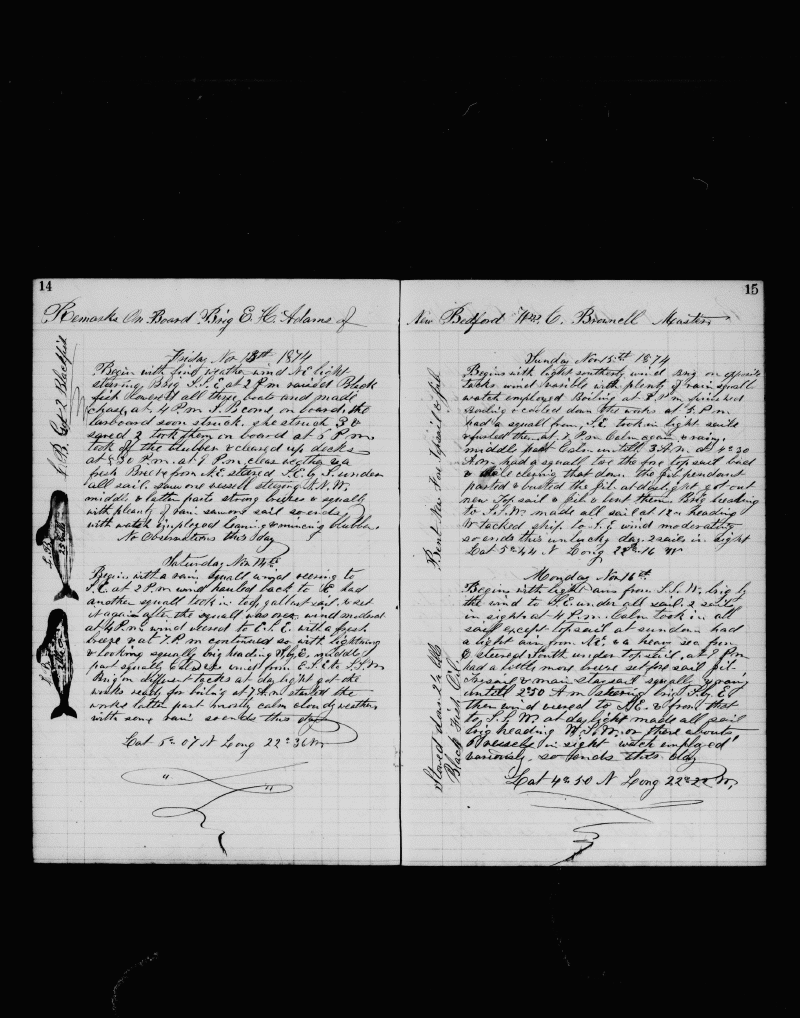 14
Remarks On Board Brig E. H. Adams of
L. B. Got 2 Blackfish
Friday Nov 13th 1874
Begins with fine weather wind N.E light
steering Brig S.S.E at 2 P.m raised Black
fish lowered all three boats and made
chase, at 4 P.m S. B come on board, the
larboard soon struck. she struck 3 &
saved 2 took them on board at 5 P.m.
took of the blubber & cleared up decks
at 8 P.m. at 9 P.m. clear weather &a
fresh Breeze from N.E. steered S.E. by S. under
all sail. saw one vessell steering N.N.W.
middle & latter parts strong breeze & squally
with plenty of rain saw one sail so ends
with watch Employed leaning & mincing blubber.
No Observations this day
Saturday Nov 14th
Begins with a rain squall wind veering to
S.E. at 2 P.m wind hauled back to E. had
another squall took in top gallant sail, & set
it again after the squall was over wind moderate
at 4 P.m. wind veered to E.S.E. with a fresh
breeze & at 7. P.m continued so with lightning
& looking squally brig heading S. by E. middle
part squally wind from E.S.E to S.S.W
Brig on different tacks at day light got the
works ready for boiling at 7 A.m started the
works latter part mostly calm cloudy weather
with some rain so ends this day
Lat 5° 07 N Long 22° 36 W
15
New Bedford Wm C. Brownell Master
Sunday Nov 15th 1874
Begins with light southerly wind Brig on opposite
tacks wind with plenty of rain squall
watch employed Boiling at 3 P.m finished
Boiling & cooled down the works at 5 P.m
had a squall from S.E took in light sails
& furled them at 7 P.m Calm again & rainy.
middle part Calm untill 3 A.m. at 4=30
A.m. had a squall tore the fore top sail bad
& while clewing that down the jib pendant
parted & busted the jib at daylight got out
new Top sail & jib & bent them Brig heading
to S.S.W. made all sail at 12 heading
W tacked ship to S.E wind moderating
so ends this unlucky day. 2 sails in sight
Lat 5°=44 N Long 22°=16 W
Bent New Fore Topsail & jib
Monday Nov 16th.
Begins with light airs from S.S.W. brig by
the wind to S.E. under all sail. 2 sails
in sight at 4 P.m. Calm took in all
sail except topsail at sundown had
a light air from N.E. & a heavy sea from
E steered South under top sail. at 8 P.m
had a little more breeze set fore sail jib
Trysail & main staysail squally & rainy
untill 2=30 A.m steering brig S. by E.
then wind veered to N.E. & from that
to S.S.W. at daylight made all sail
brig heading W.S.W. or there abouts
vessels in sight watch employed
variously. so ends this day
Lat 4°=50 N Long 22°=22 W.
Stowed down bbls
Black Fish Oil.